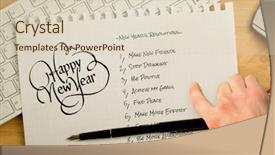 Crystal
Templates for PowerPoint
New Years Resolutions
Happy
New Year
1, Make New Friends
2, Stop Drinking
3, Be Positive
4, Achieve My Goals
5, Find Peace
6, Make More Effort
8, Be More